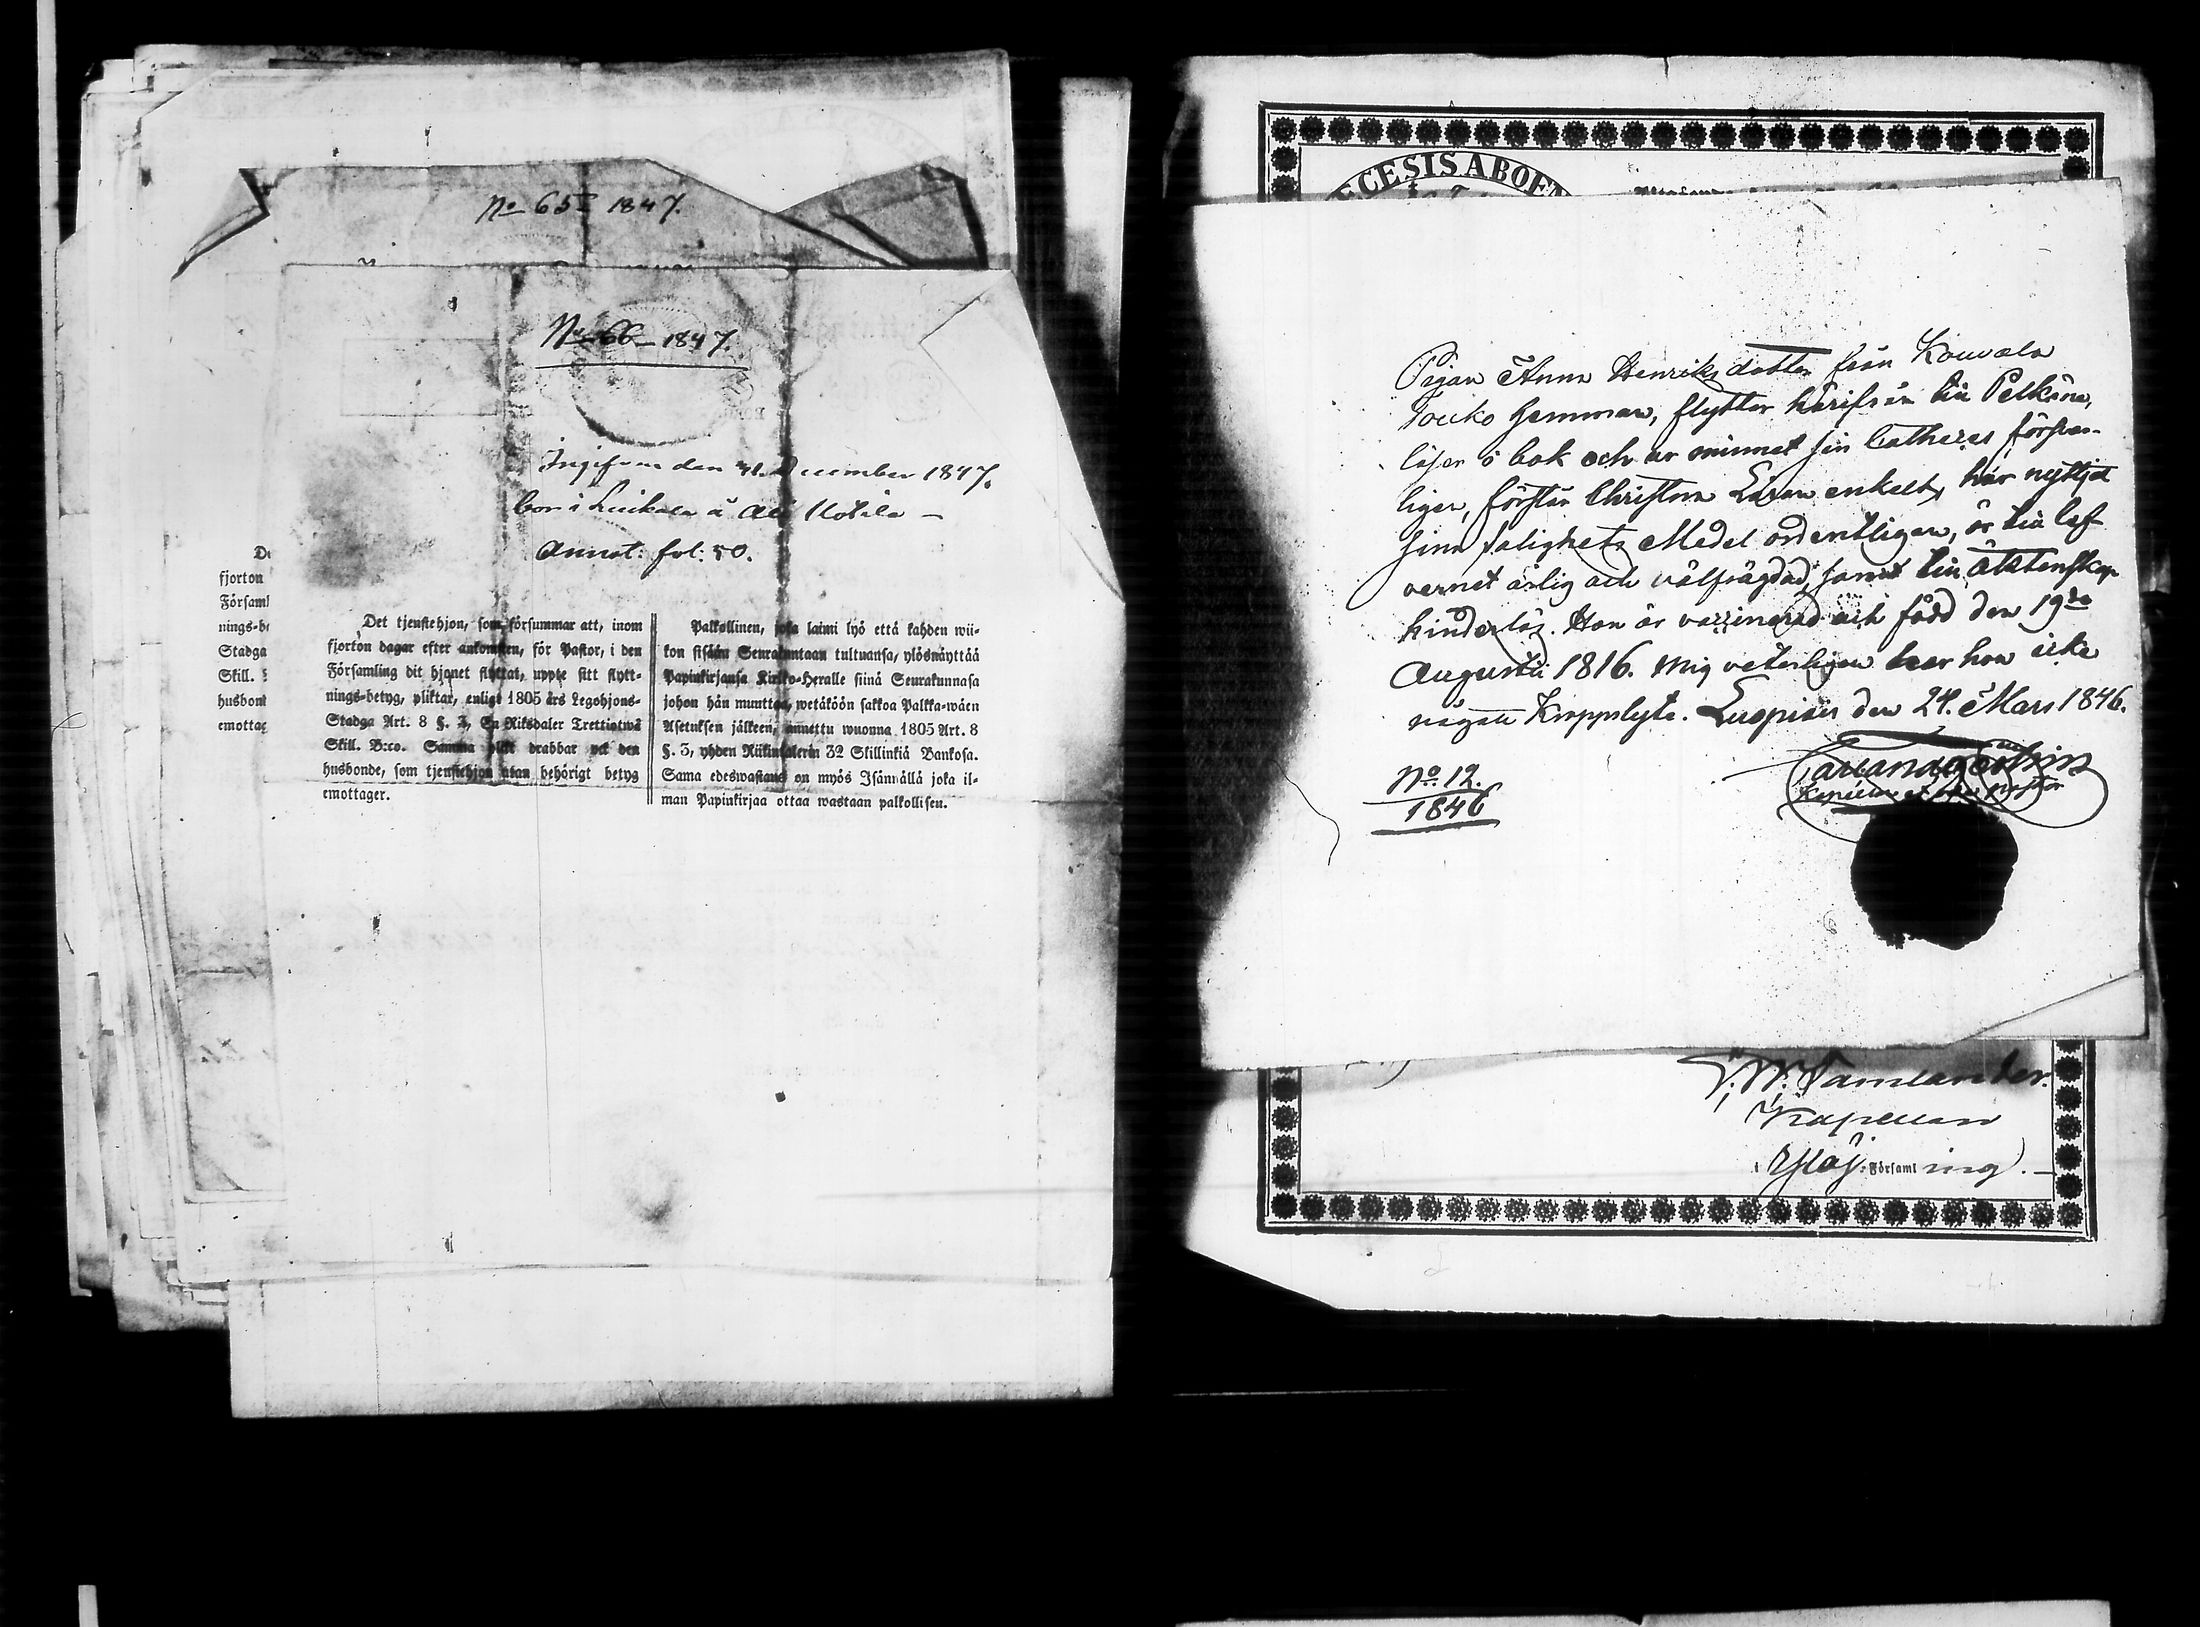 No 65 1847.
No 66 1847.
Ingifven den 31 December 1847.
bor i Luikala å Ali Uotila
Annot: fol: 50.
De
fjorton
Församl
nings-be
Stadga
Skill.
husbond
emottag
Det tjenstehjon, som försummar att, inom
fjorton dagar efter ankomsten, för Pastor, i den
Församling dit hjonet flyttat, uppte sitt flytt-
nings-betyg, pliktar, enligt 1805 års Legohjons-
Stadga Art. 8 §. 3, En Riksdaler Trettiotwå
Skill. B:co. Samma plikt drabbar ock den
husbonde, som tjenstehjon utan behörigt betyg
emottager.
Palkollinen, joka laimi lyö että kahden wii-
kon sisään Seurakuntaan tultuansa, ylösnäyttää
Papinkirjansa Kirkko-Heralle siinä Seurakunnasa
johon hän muuttaa, wetäköön sakkoa Palkka-wäen
Asetuksen jälkeen, annettu wuonna 1805 Art. 8
§. 3, yhden Riikintalerin 32 Skillinkiä Bankosa.
Sama edeswastaus on myös Isännällä joka il-
man Papinkirjaa ottaa wastaan palkollisen.
ECESIS ABOEN
Pigan Anna Henriksdotter från Kouvala
Jouko hemman, flyttar härifrån till Pelkäne,
läser i bok och ur minnet sin Catheces försvar-
ligen, förstår Christna Läran enkelt, har nyttjat
sina salighets Medel ordentligen, är till lef-
vernet ärlig och välfrägdad, samt till äktenskap
hinderlös. Hon är vaccinerad och född den 19de
Augusti 1816. Mig veterligen har hon icke
något Kroppslyte. Luopiois den 24 Mars 1846.
No 12.
1846
Kapellan
Ylöj. Församling.